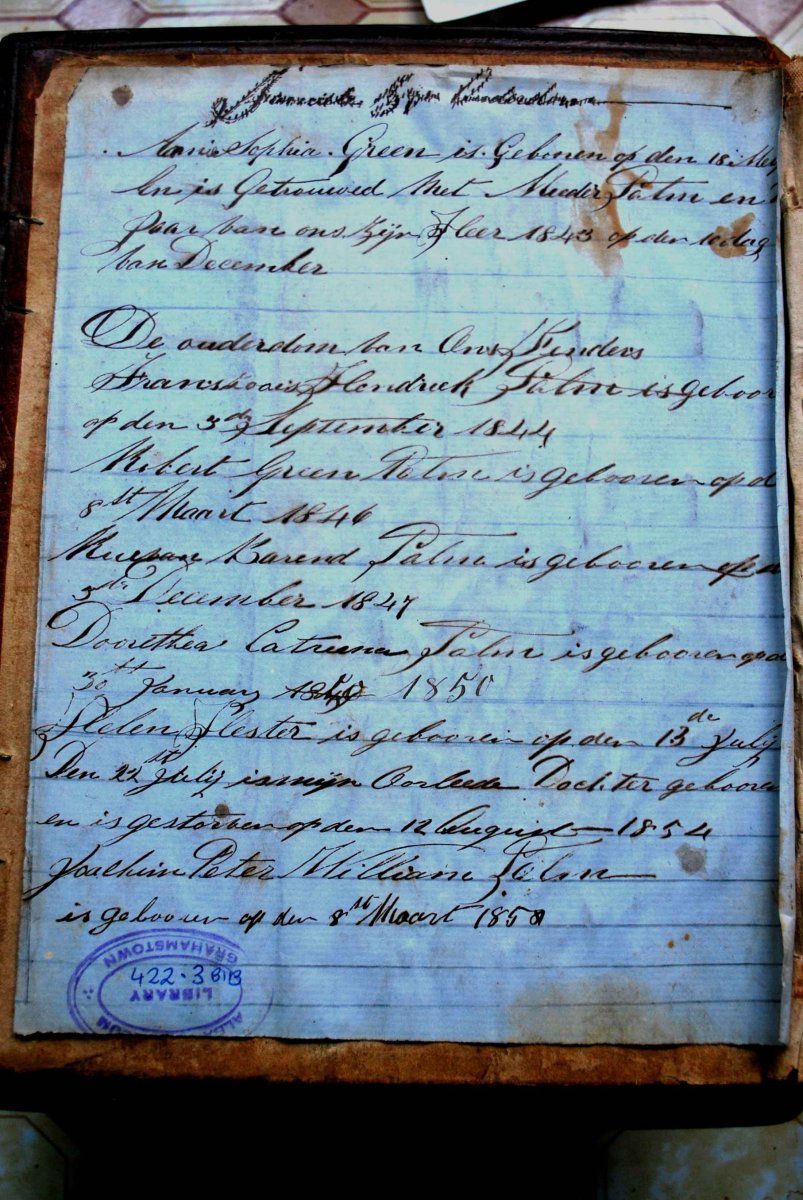 Annie Sophia. Green is. Gebooren op den 18 Mey
En is Getrouwed Met Meeder Palm en
Jaar van ons Zijn Heer 1843 op den 10 dag
van December
De ouderdom van Ons Kenders
Frans Hendrick Palm is geboor
op den 3de September 1844
Robert Green Palm is gebooren op d
8st Maart 1846
Barend Palm is gebooren op
5de December 1847
Doorethea Catriena Palm is gebooren op d
30st January 1850 1850
Helen Hester is gebooren op den 13de July
Den 22st July is mijn Oorleede Dochter gebooren
en is gestorven op den 12 August 1854
Joachim Peter William Palm
is gebooren op den 8st Maart 1858
422.3 BIB
LIBRARY
GRAHAMSTOWN